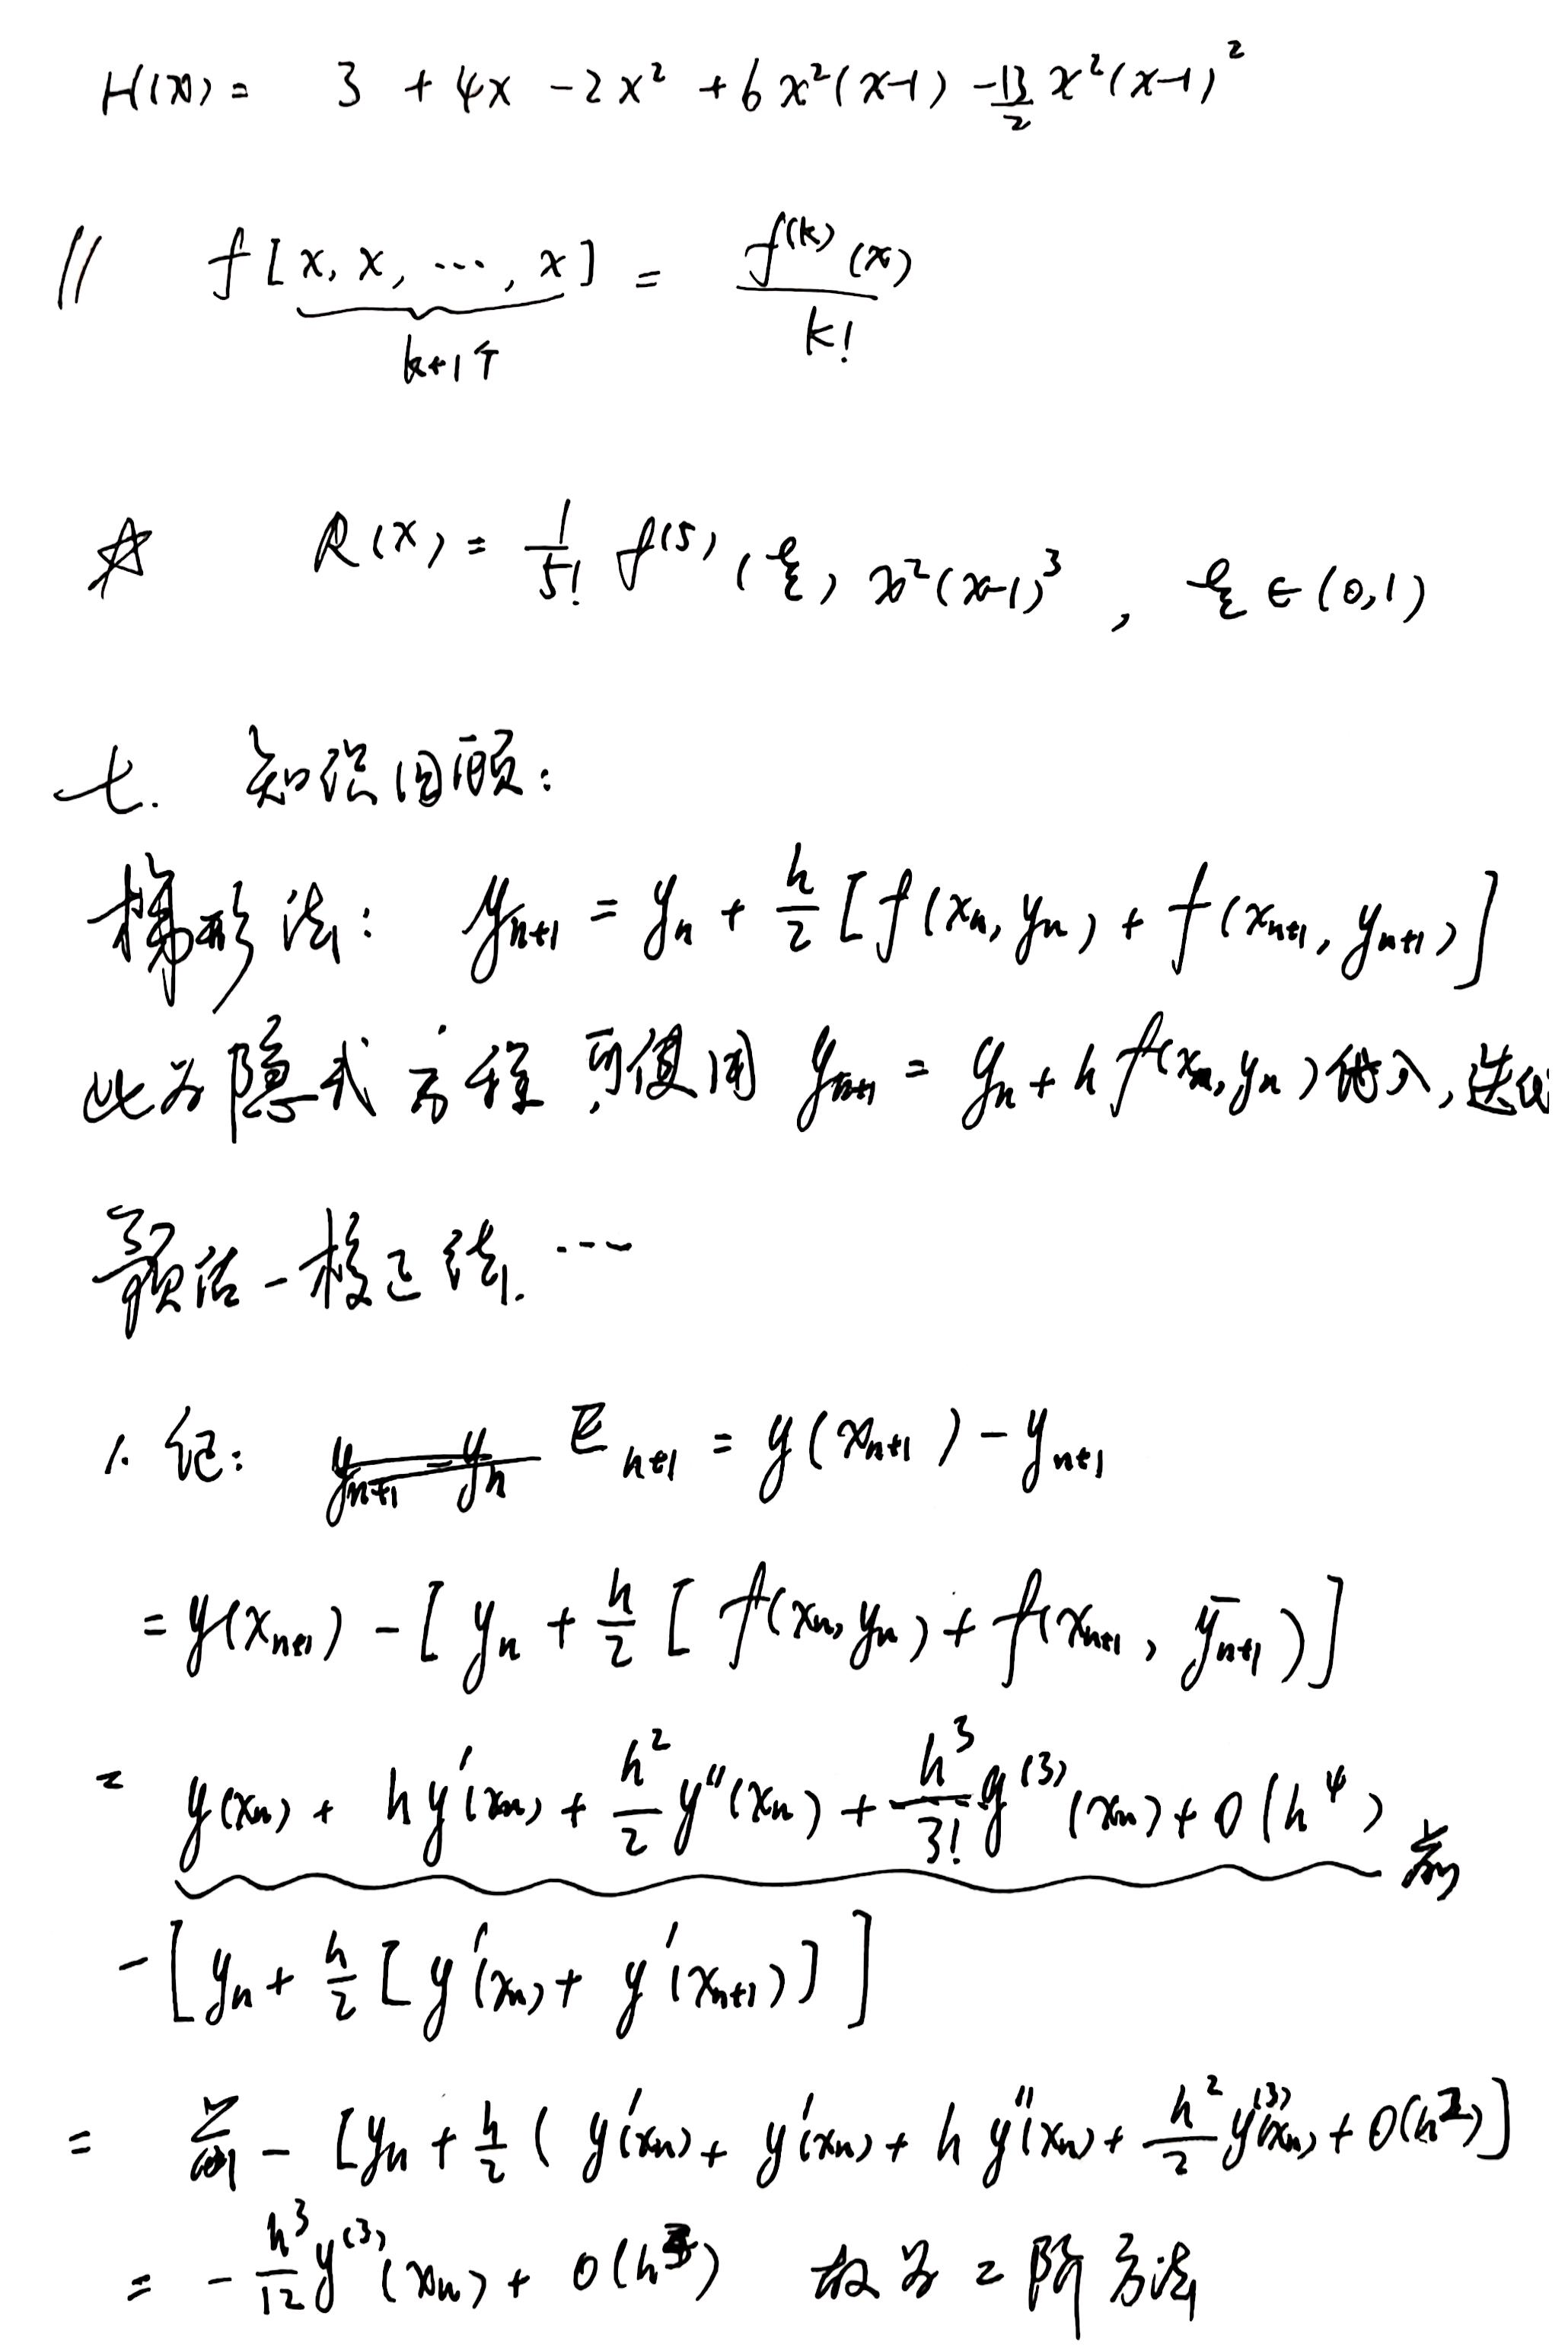 H(x) = 3 + 4x - 2x² + 6x²(x-1) - 13/2 x²(x-1)²
// f[x, x, ⋯, x] = f^(k)(x) / k!
k+1个
☆ R(x) = 1/5! f^(5)(ξ) x²(x-1)³, ξ ∈ (0,1)
七. 知识回顾:
梯形法: y_{n+1} = y_n + h/2 [f(x_n, y_n) + f(x_{n+1}, y_{n+1})]
此为隐式方程 可使用 y_{n+1} = y_n + h f(x_n, y_n) 代入, 迭代
预估-校正法. ⋯
1. 记: E_{n+1} = y(x_{n+1}) - y_{n+1}
= y(x_{n+1}) - [y_n + h/2 [f(x_n, y_n) + f(x_{n+1}, ȳ_{n+1})]
= y(x_n) + hy'(x_n) + h²/2 y''(x_n) + h³/3! y^(3)(x_n) + O(h⁴)
- [y_n + h/2 [y'(x_n) + y'(x_{n+1})]]
= - [y_n + h/2 (y'(x_n) + y'(x_n) + h y''(x_n) + h²/2 y^(3)(x_n) + O(h
= - h³/12 y^(3)(x_n) + O(h ) 故为二阶方法